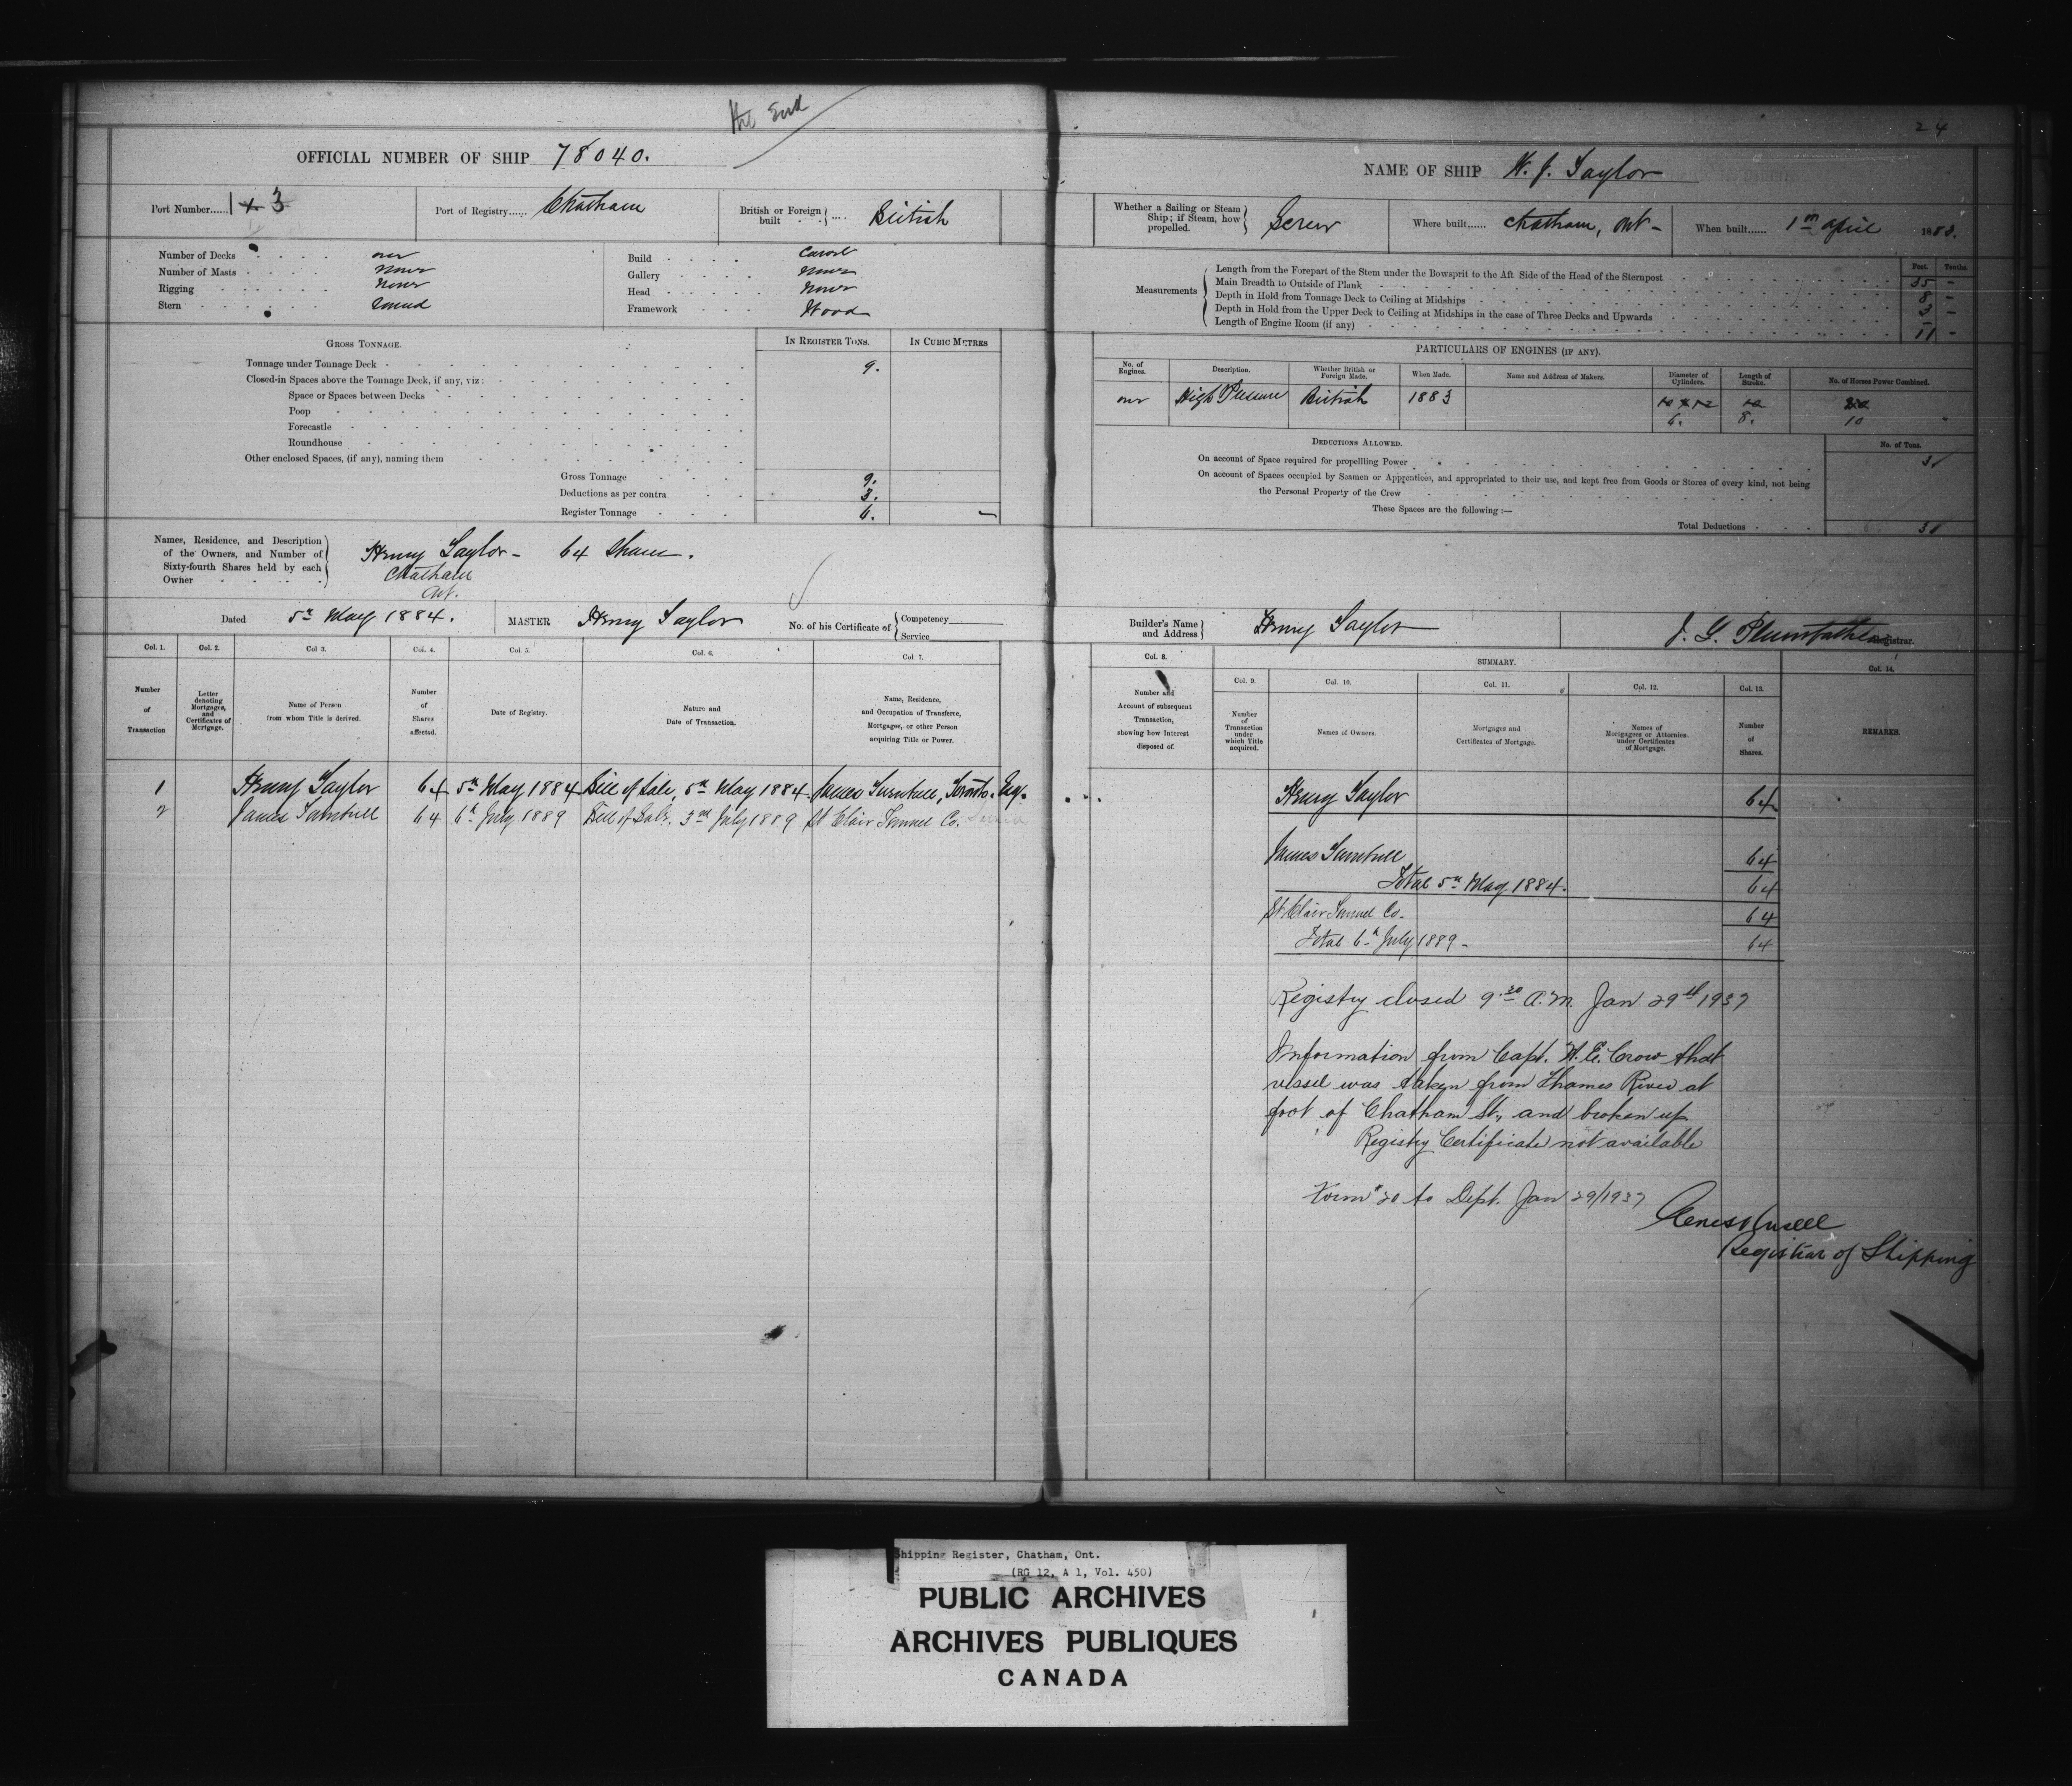 the End
24
OFFICIAL NUMBER OF SHIP 78040.
NAME OF SHIP W. J. Taylor
Port Number...... 3
Port of Registry...... Chatham
British or Foreign built .... British
Whether a Sailing or Steam Ship; if Steam, how propelled. Screw
Where built...... Chatham, Ont -
When built...... 1st April 1883.
Number of Decks one
Number of Masts None
Rigging None
Stern round
Build Carvel
Gallery None
Head None
Framework Wood
Measurements
Feet. Tenths.
Length from the Forepart of the Stem under the Bowsprit to the Aft Side of the Head of the Sternpost 35 -
Main Breadth to Outside of Plank 8 -
Depth in Hold from Tonnage Deck to Ceiling at Midships 3 -
Depth in Hold from the Upper Deck to Ceiling at Midships in the case of Three Decks and Upwards -
Length of Engine Room (if any) 11 -
GROSS TONNAGE.
IN REGISTER TONS.
IN CUBIC METRES
Tonnage under Tonnage Deck 9.
Closed-in Spaces above the Tonnage Deck, if any, viz:
Space or Spaces between Decks
Poop
Forecastle
Roundhouse
Other enclosed Spaces, (if any), naming them
Gross Tonnage 9.
Deductions as per contra 3.
Register Tonnage 6. -
PARTICULARS OF ENGINES (IF ANY).
No. of Engines.
Description.
Whether British or Foreign Made.
When Made.
Name and Address of Makers.
Diameter of Cylinders.
Length of Stroke.
No. of Horses Power Combined.
one High Pressure British 1883
6. 8. 10
DEDUCTIONS ALLOWED.
No. of Tons.
On account of Space required for propellling Power 3
On account of Spaces occupied by Seamen or Apprentices, and appropriated to their use, and kept free from Goods or Stores of every kind, not being
the Personal Property of the Crew
These Spaces are the following :—
Total Deductions 3
Names, Residence, and Description of the Owners, and Number of Sixty-fourth Shares held by each Owner
Henry Taylor - 64 Shares.
Chatham
Ont.
Dated 5th May 1884.
MASTER Henry Taylor
No. of his Certificate of Competency Service
Builder's Name and Address Henry Taylor
Registrar.
Col. 1.
Number of Transaction
Col. 2.
Letter denoting Mortgages, and Certificates of Mortgage.
Col 3.
Name of Person from whom Title is derived.
Col. 4.
Number of Shares affected.
Col. 5.
Date of Registry.
Col. 6.
Nature and Date of Transaction.
Col 7.
Name, Residence, and Occupation of Transferee, Mortgagee, or other Person acquiring Title or Power.
Col. 8.
Number and Account of subsequent Transaction, showing how Interest disposed of.
SUMMARY.
Col. 9.
Number of Transaction under which Title acquired.
Col. 10.
Names of Owners.
Col. 11.
Mortgages and Certificates of Mortgage.
Col. 12.
Names of Mortgagees or Attornies under Certificates of Mortgage.
Col. 13.
Number of Shares.
Col. 14.
REMARKS.
1 Henry Taylor 64 5th May 1884 Bill of Sale, 5th May 1884 James Turnbull, Toronto. Esq.
2 James Turnbull 64 6th July 1889 Bill of Sale. 3rd July 1889 St Clair Tunnel Co. Sarnia
Henry Taylor 64
James Turnbull 64
Total 5th May 1884. 64
St. Clair Tunnel Co. 64
Total 6th July 1889 - 64
Registry closed 9.30 A.M. Jan 29th 1937
Information from Capt. W. E. Crow that
vessel was taken from Thames River at
foot of Chatham St., and broken up
Registry Certificate not available
Form #20 to Dept. Jan 29/1937
Registrar of Shipping
Shipping Register, Chatham, Ont.
(RG 12, A 1, Vol. 450)
PUBLIC ARCHIVES
ARCHIVES PUBLIQUES
CANADA